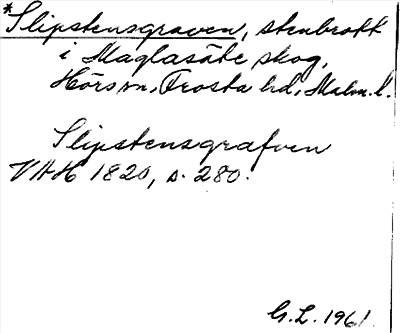 *Slipstensgraven, stenbrott
i Maglasäte skog,
Hörs sn, Frosta hd, Malm. l.
Slipstensgrafven
VAH 1820, s. 280.
G.L. 1961.